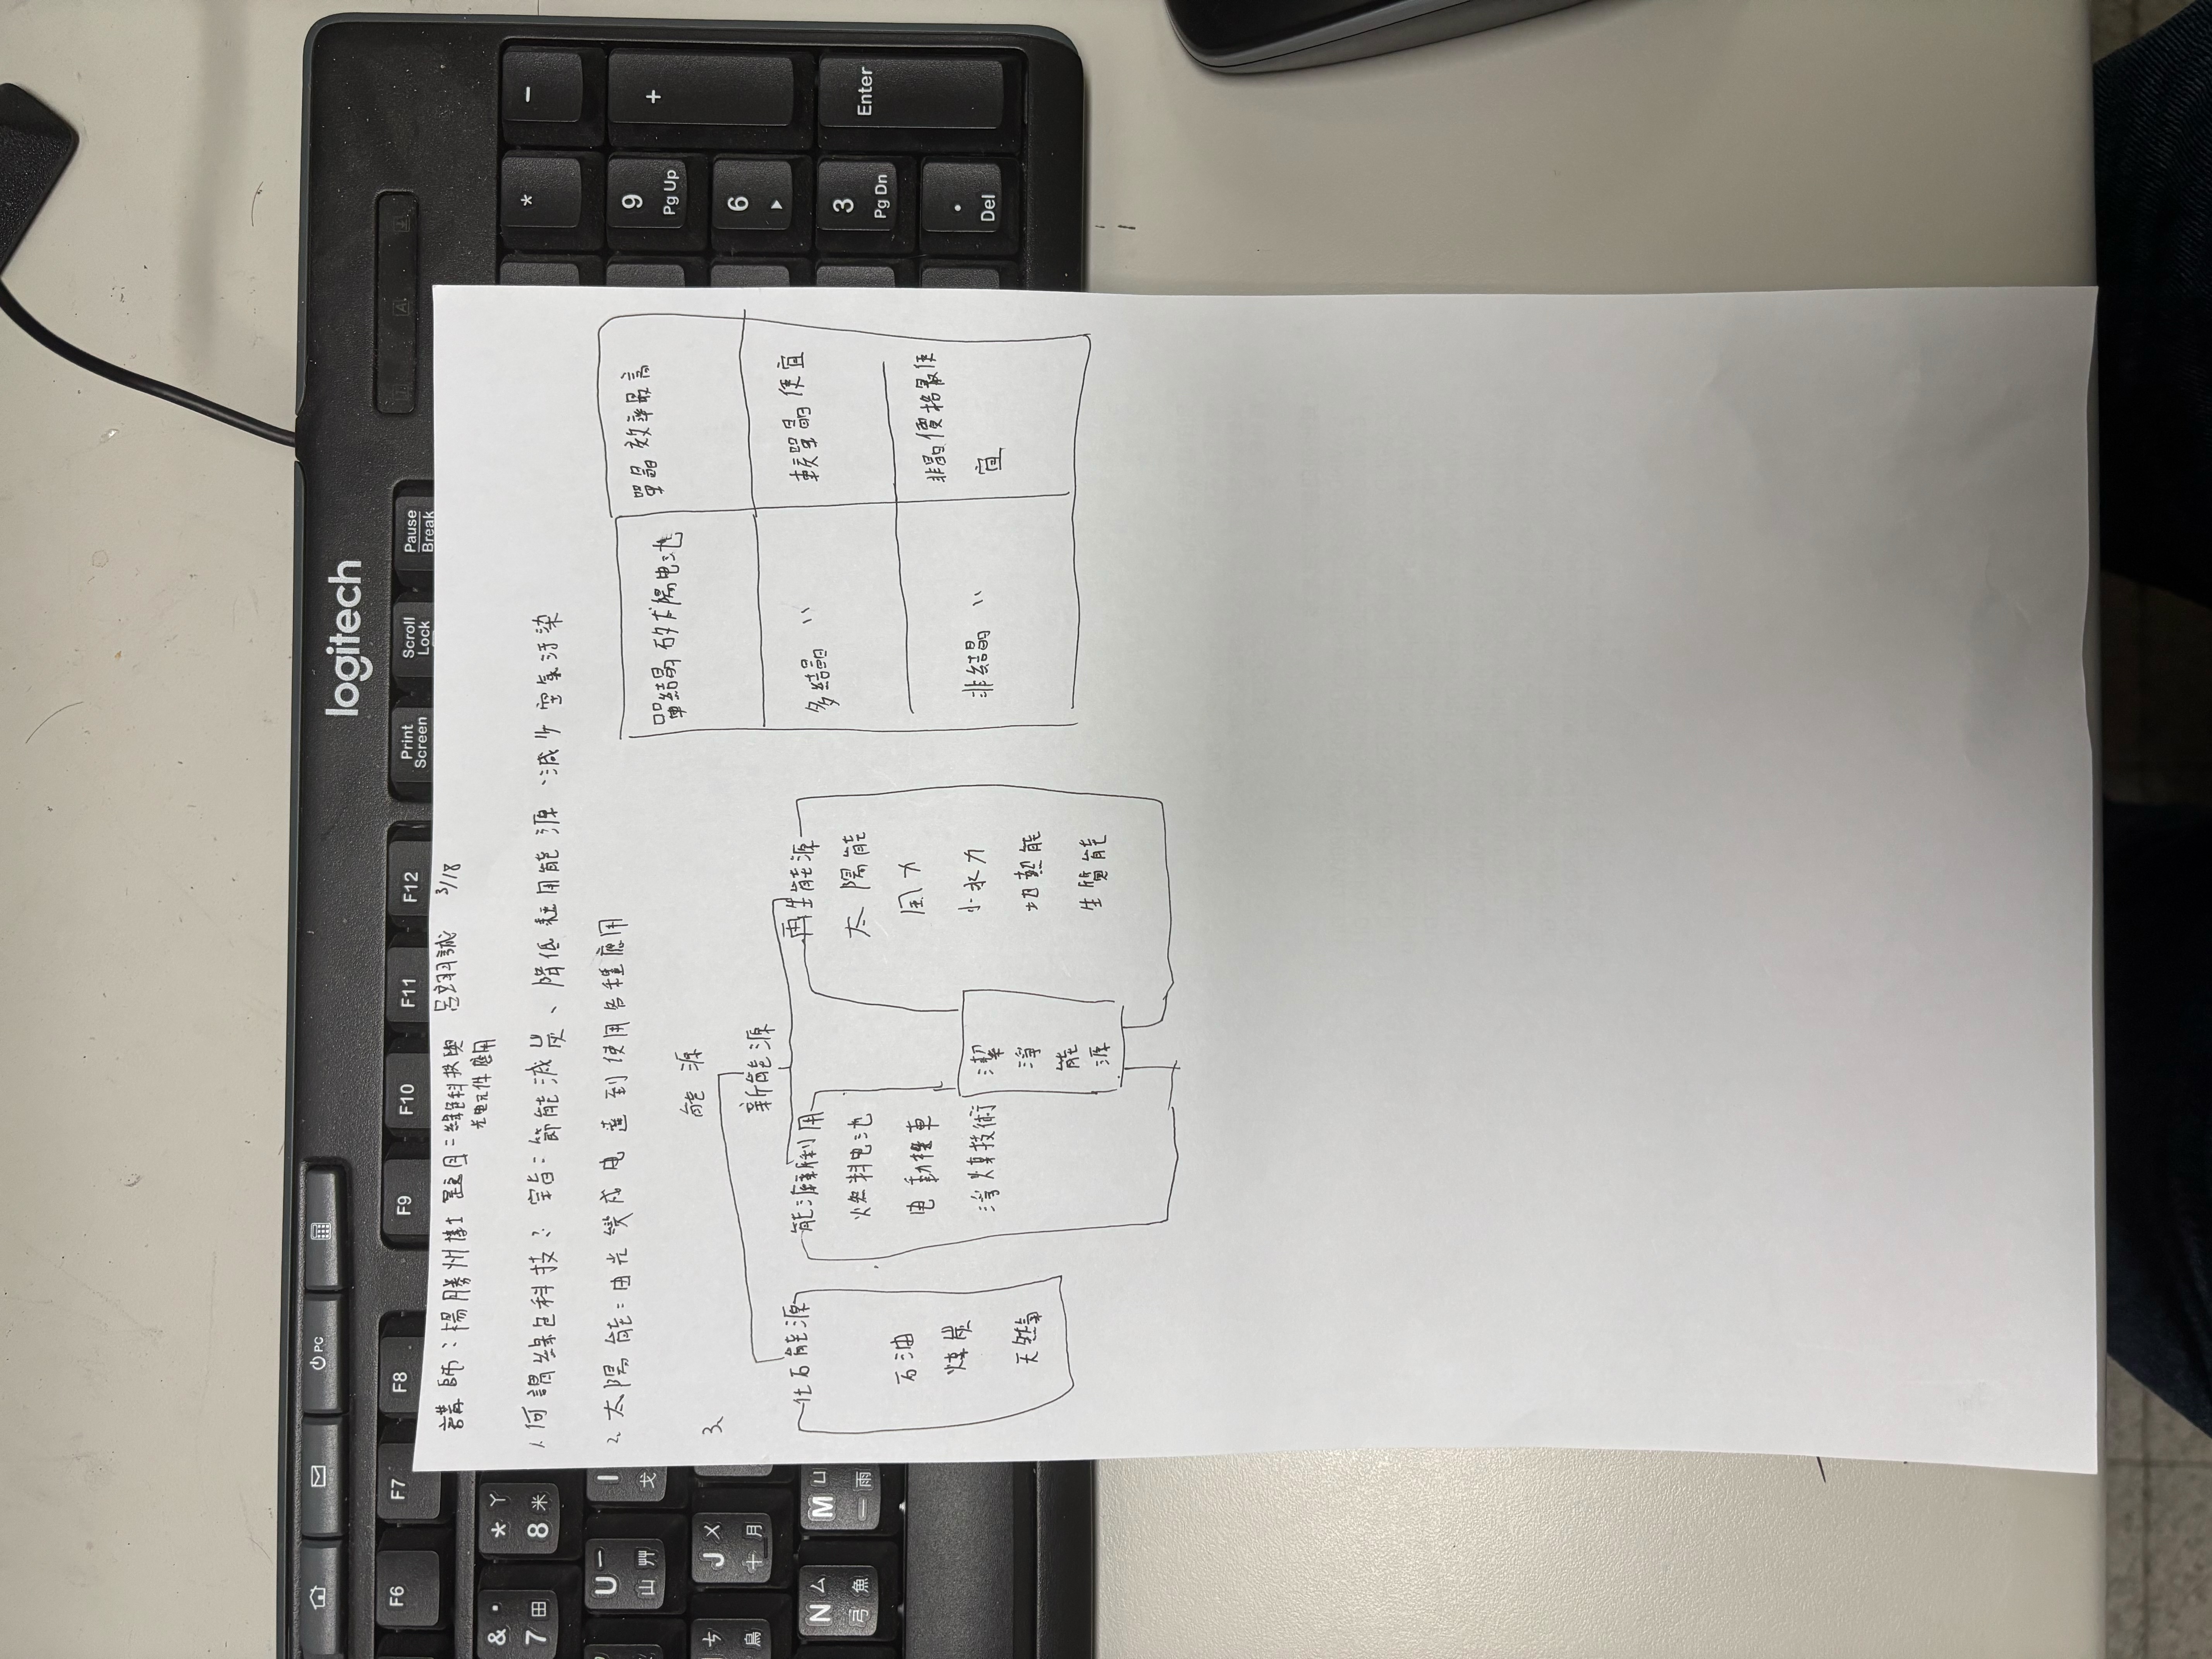 logitech
PC
F6 F7 F8 F9 F10 F11 F12
Print Screen
Scroll Lock
Pause Break
& 7 田
* ㄚ 8 米
* −
U ㄧ 山
I 戈
9 Pg Up
+
ㄘ 鳥
J ㄨ 十 月
6
N ㄙ 弓 魚
M ㄩ 一 雨
3 Pg Dn
Enter
. Del
講師:楊勝州博士 題目:綠色科技與 呂翊誠 3/18
光电元件應用
1. 何謂綠色科技? 宗旨:節能減炭、降低耗用能源、減少空氣汚染
2. 太陽能:由光變成电達到使用各種應用
3、
能源
新能源
化石能源
石油
煤炭
天然氣
能源新利用
燃料电池
电動機車
淨煤技術
潔
淨
能
源
再生能源
太陽能
風力
小水力
地熱能
生質能
單結晶矽太陽电池 單晶效率最高
多結晶 〃 較單晶便宜
非結晶 〃 非晶價格最便
宜